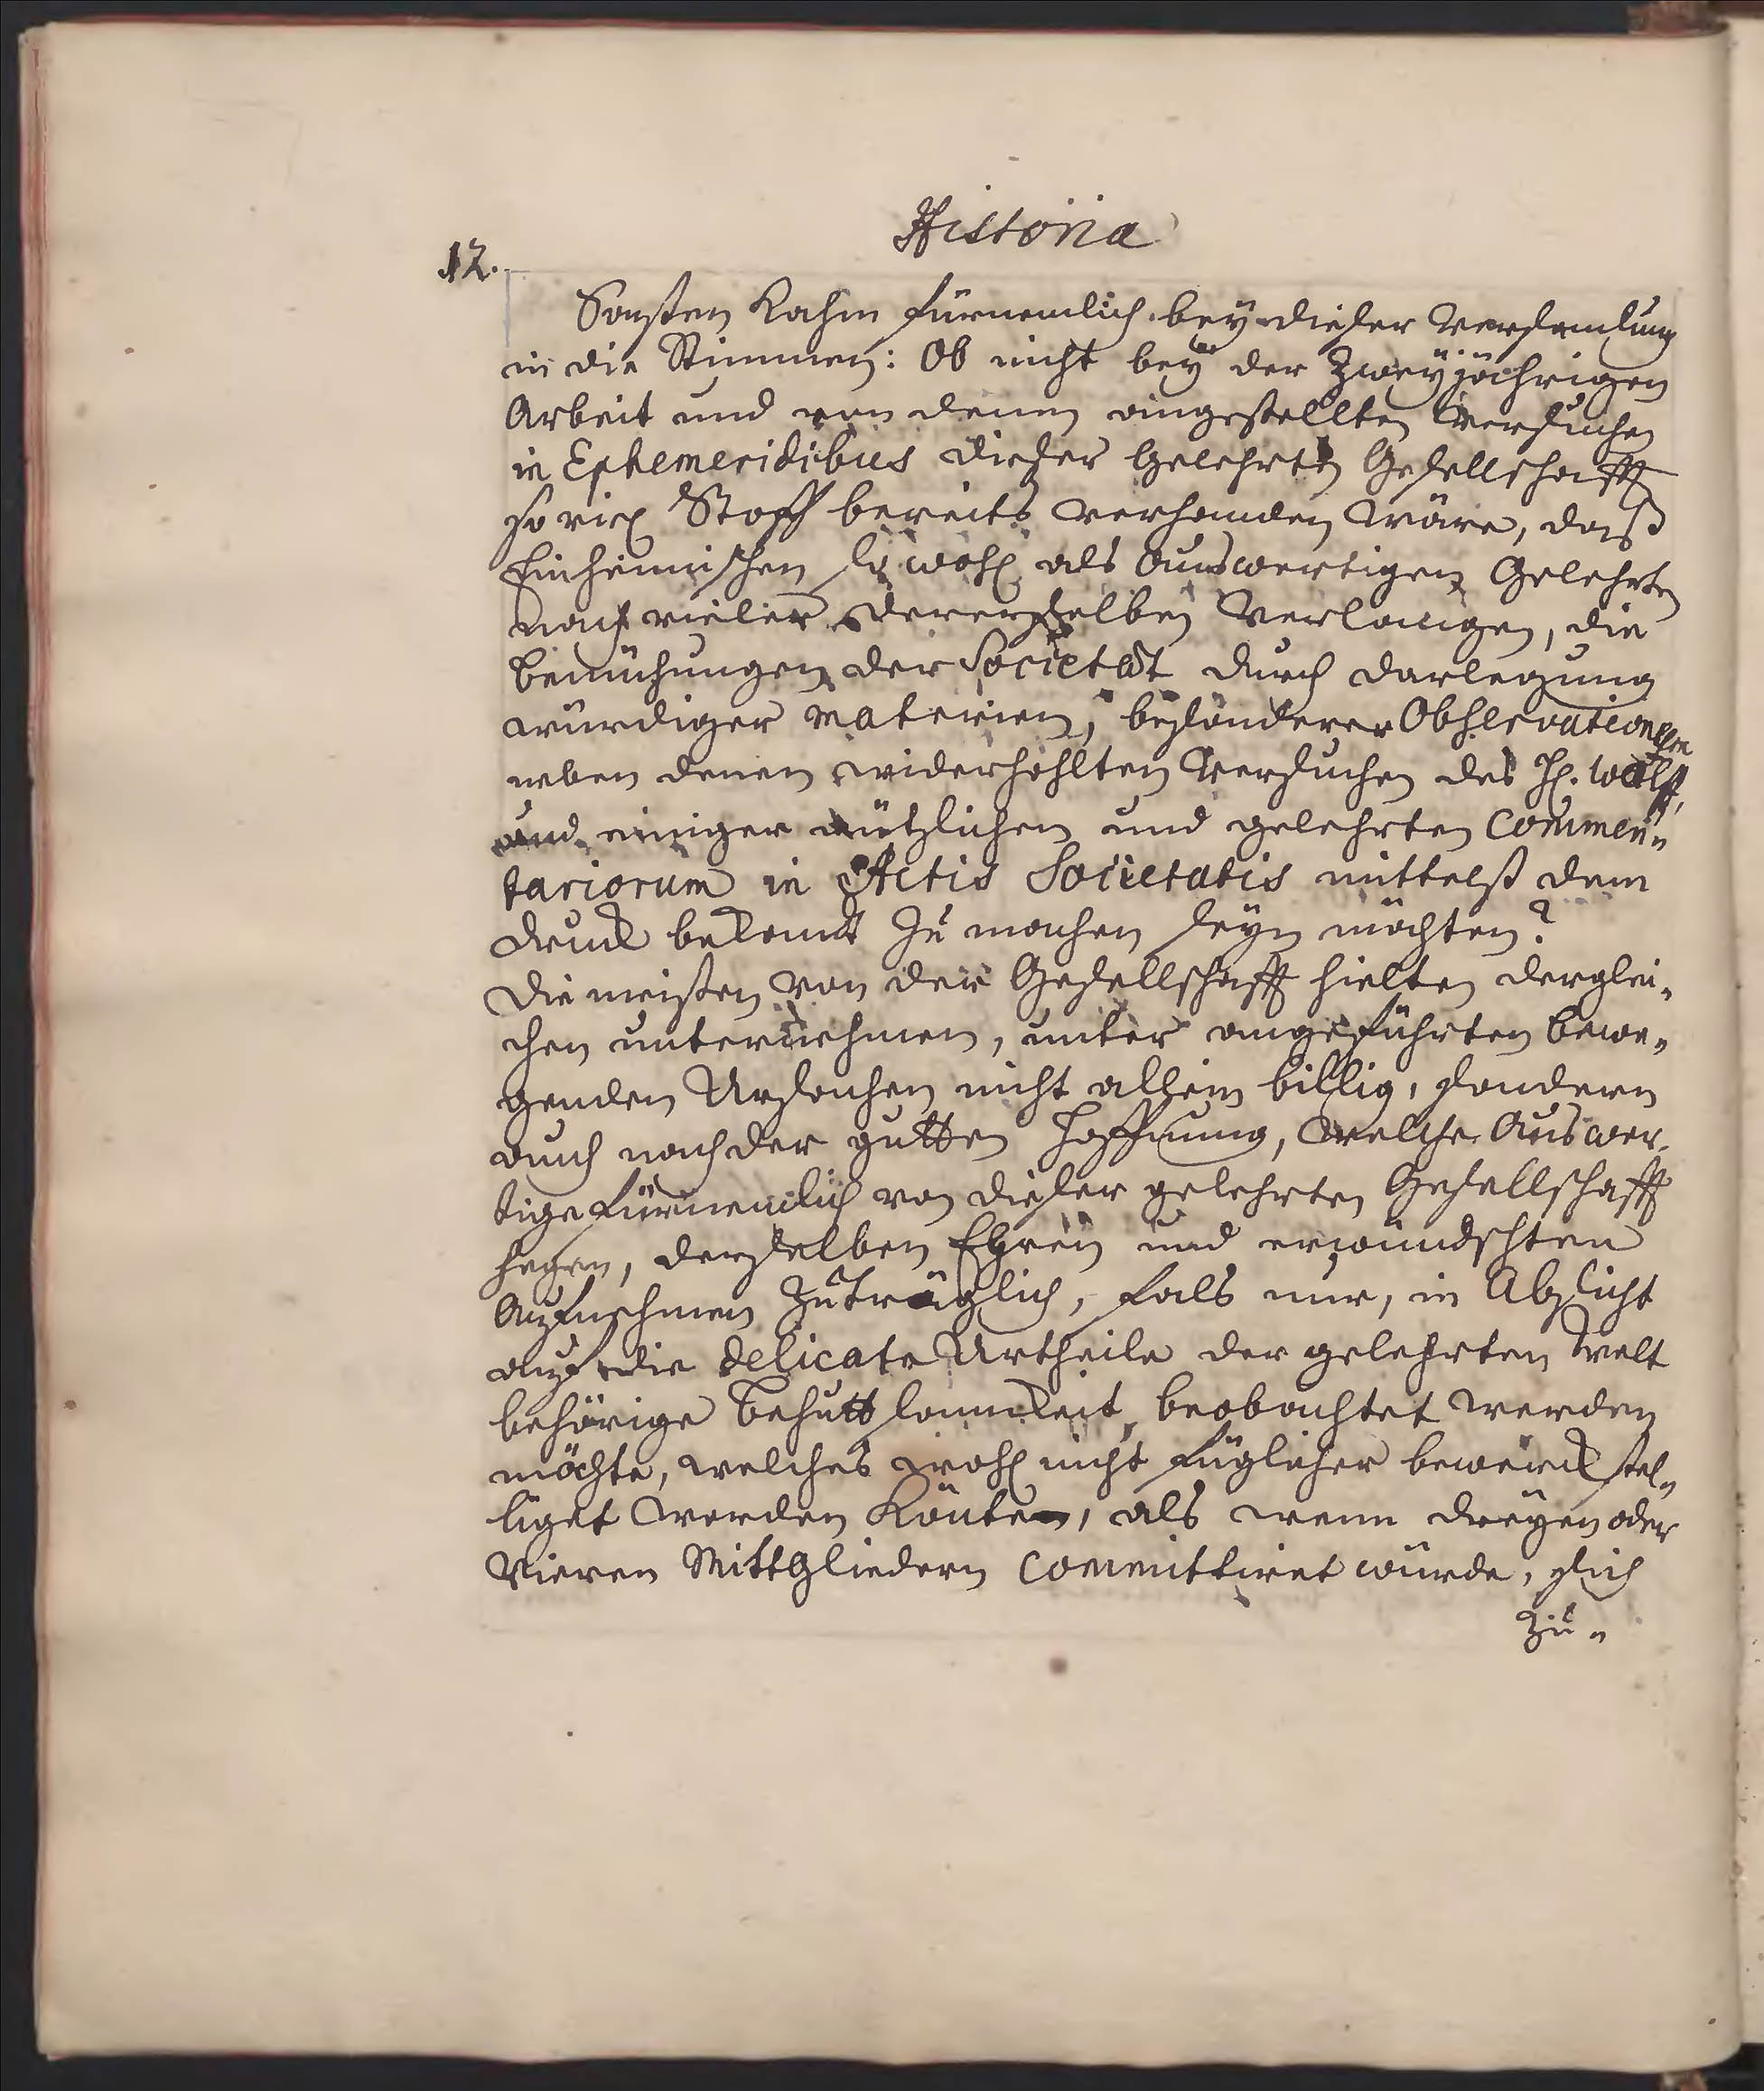 Historia
12.
Sonsten Kahm fürnemlich bey dießer Versamlung
in die Stimmen: Ob nicht bey der Zweyjährigen
Arbeit und von denen angestellten Versuchen
in Ephemeridibus dießer Gelehrten Gesellschafft
so viel Stoff bereits verhanden wäre, daß
Einheimischen so wohl als Auswertigen Gelehrten
nach vieler dererselben Verlangen, die
bemühungen der Societät durch darlegung
würdiger Materien, besonderer Observationen
neben denen widerhohlten Versuchen des H. Wolff,
und einiger nützlichen und gelehrten Commen„
tariorum in Actis Societatis mittelst dem
druck bekandt zu machen seyn möchten?
Die meisten von der Gesellschafft hielten derglei„
chen unternehmen, unter angeführten bewe„
genden Ursachen nicht allein billig, sondern
auch nach der gutten Hoffnung, welche Auswer„
tige fürnemlich von dießer gelehrten Gesellschafft
hegen, derselben Ehren und erwündschten
Aufnehmen Zuträglich, fals nur, in Absicht
auf die delicate Urtheile der gelehrten Welt
behörige Behuttsamkeit beobachtet werden
möchte, welches wohl nicht füglicher bewerckstel„
liget werden Könte, als wenn dreyen oder
Vieren Mittgliedern committiret würde, sich
Zu„